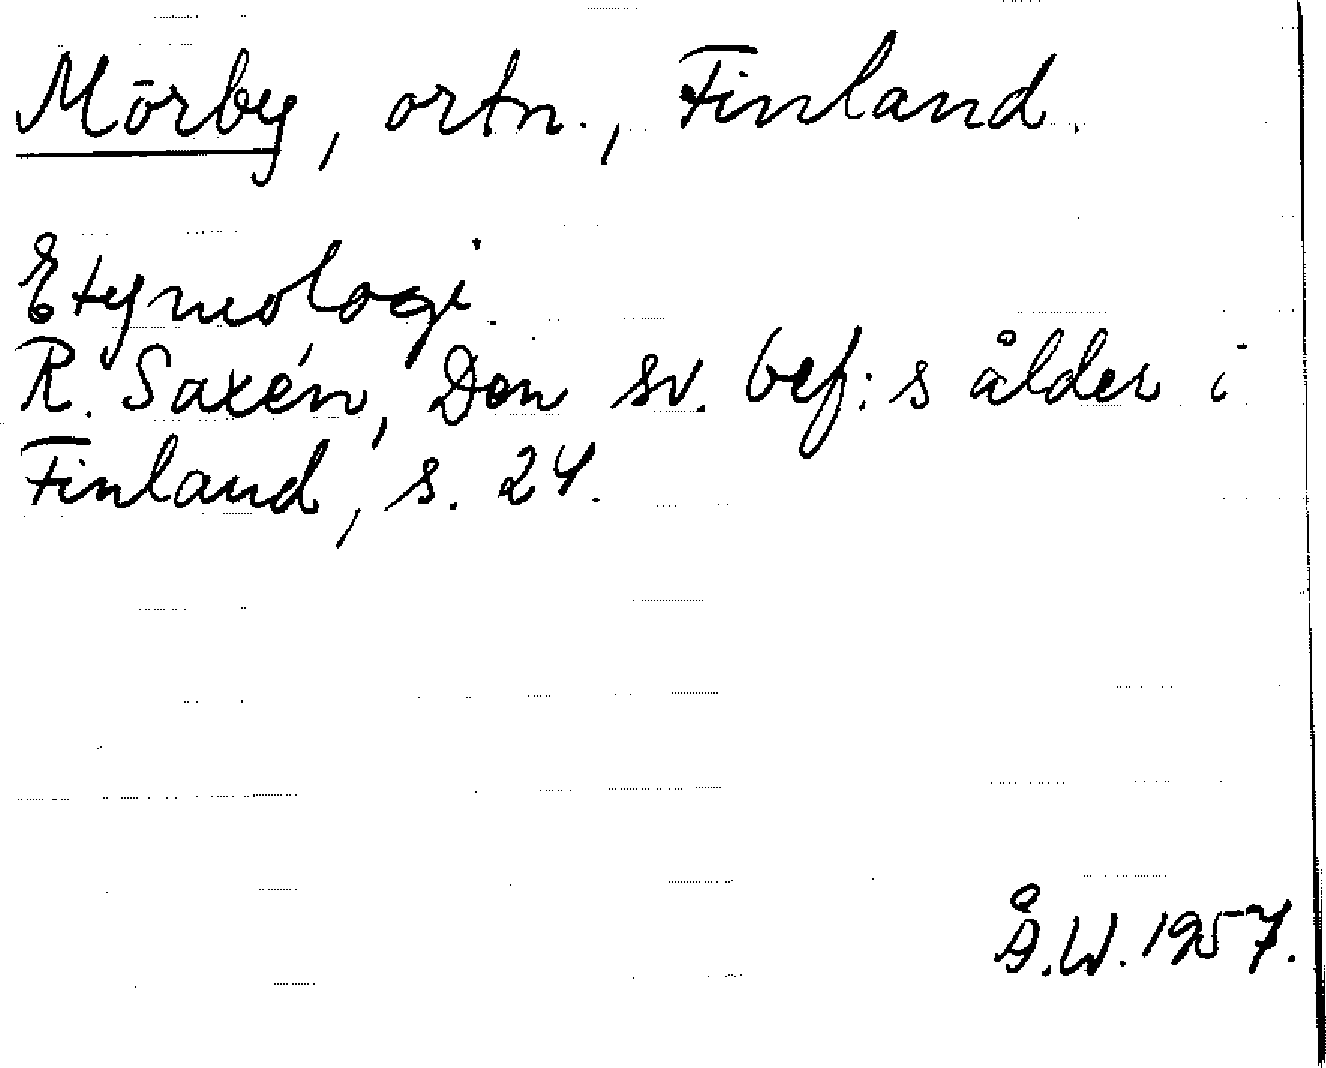 Mörby, ortn., Finland.
Etymologi.
R. Saxén, Den sv. bef:s ålder i
Finland, s. 24.
Å.W. 1957.